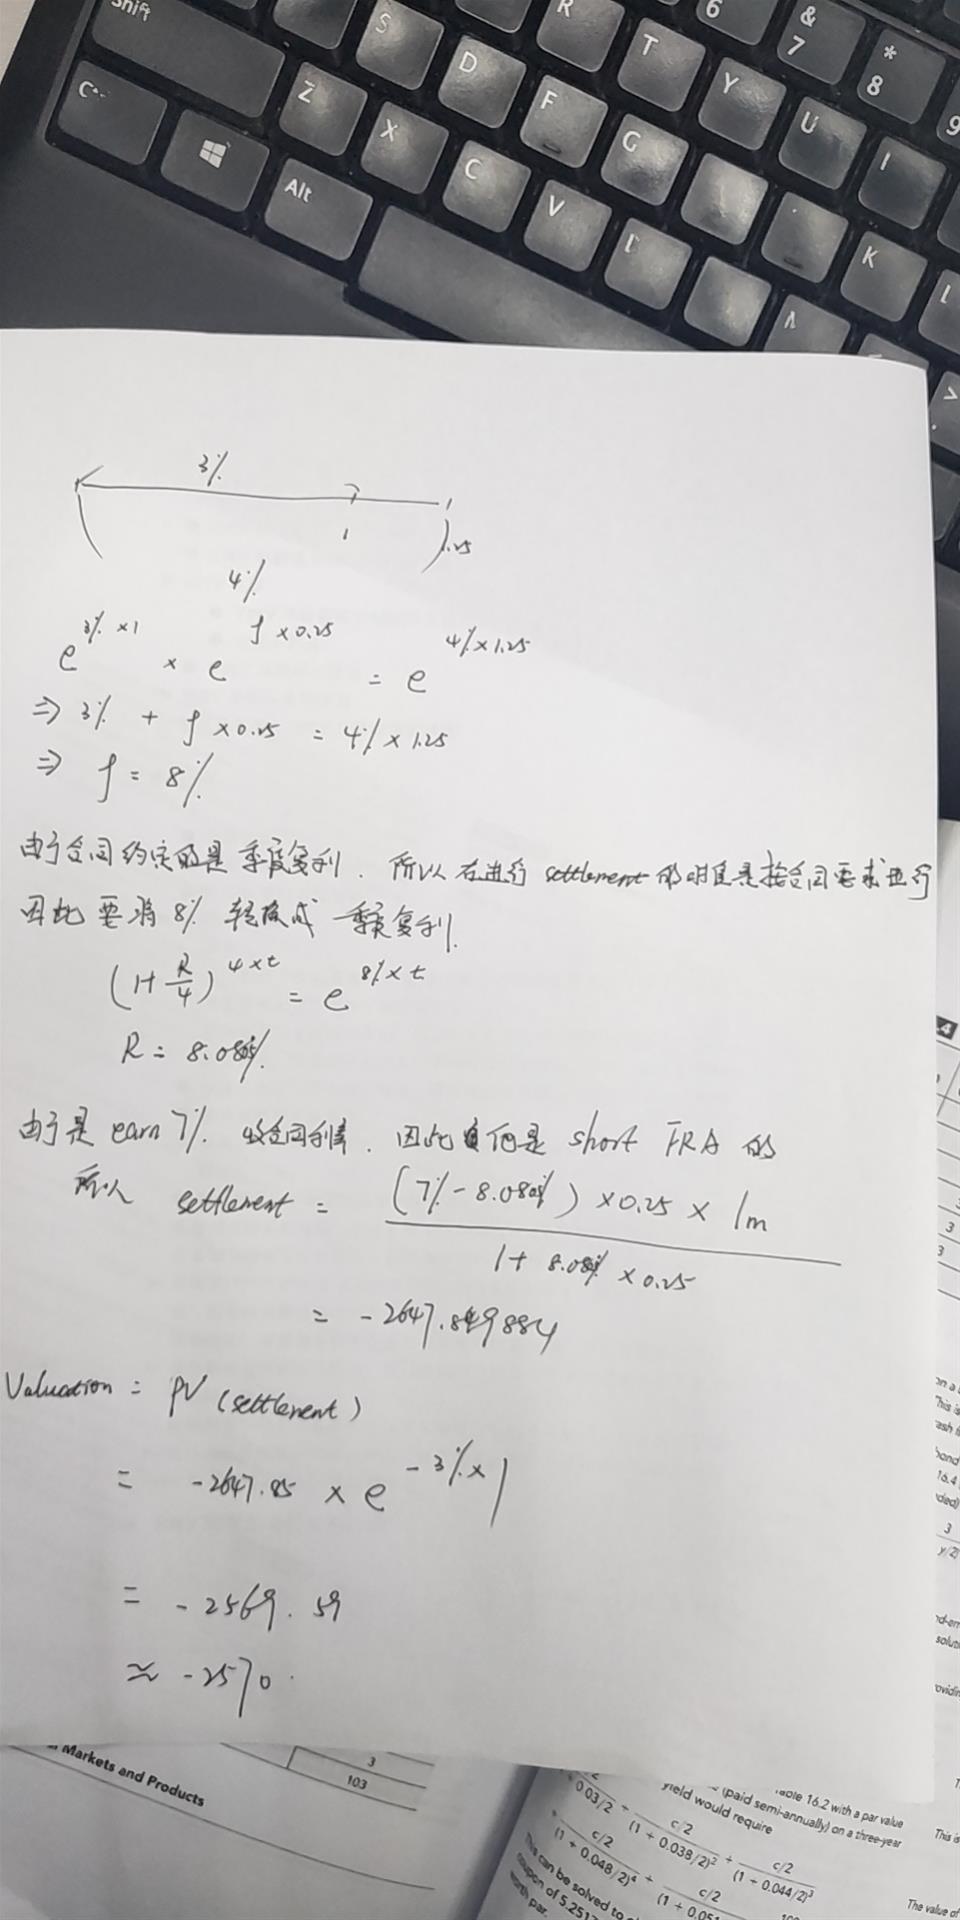 Shift
S
D
F
R
T
Y
U
I
6
&
7
*
8
9
Z
X
C
V
G
K
L
Alt
>
.
3%
1
1.25
4%
e^{3% ×1} × e^{f ×0.25} = e^{4%×1.25}
⇒ 3% + f ×0.25 = 4% × 1.25
⇒ f = 8%
由于合同约定的是季度复利. 所以在进行 settlement 的时候是按合同要求进行
因此要将 8% 转换成 季度复利.
(1+ R/4)^{4×t} = e^{8%×t}
R = 8.0805%
由于是 earn 7%. 收合同利率. 因此 他是 short FRA 的
所以 settlement = (7% - 8.0805%) ×0.25 × 1m / 1+ 8.08% ×0.25
= -2647.849884
Valuation = PV (settlement)
= -2647.85 × e^{-3%×1}
= -2569.59
≈ -2570.
3
103
Markets and Products
16.2 with a par value
(paid semi-annually) on a three-year
yield would require
c/2
0.03/2
+
c/2
(1 + 0.038/2)²
+
c/2
(1 + 0.044/2)³
+
c/2
(1 + 0.048/2)⁴
+
c/2
This can be solved to
coupon of 5.251
worth par.
This is
The value of